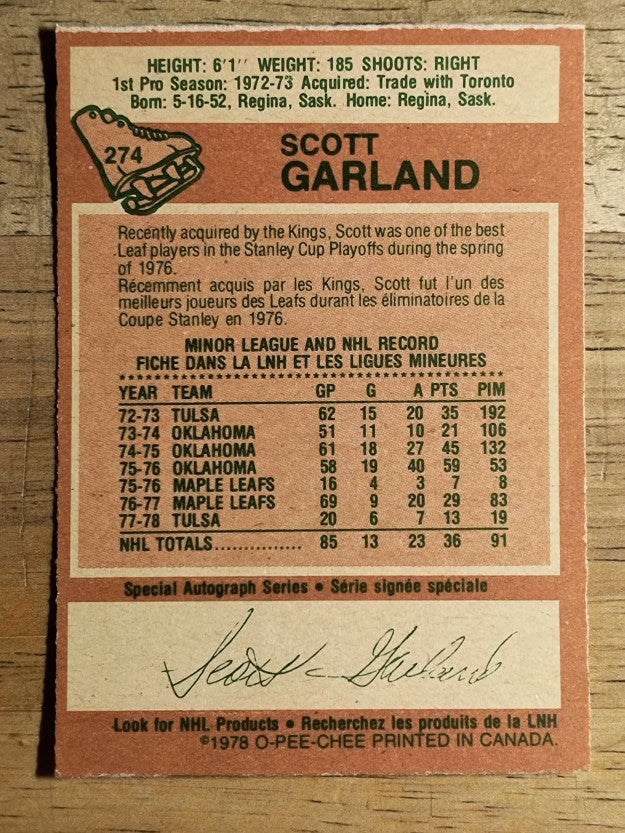 HEIGHT: 6'1'' WEIGHT: 185 SHOOTS: RIGHT
1st Pro Season: 1972-73 Acquired: Trade with Toronto
Born: 5-16-52, Regina, Sask. Home: Regina, Sask.
274
SCOTT
GARLAND
Recently acquired by the Kings, Scott was one of the best
Leaf players in the Stanley Cup Playoffs during the spring
of 1976.
Récemment acquis par les Kings, Scott fut l'un des
meilleurs joueurs des Leafs durant les éliminatoires de la
Coupe Stanley en 1976.
MINOR LEAGUE AND NHL RECORD
FICHE DANS LA LNH ET LES LIGUES MINEURES
YEAR TEAM GP G A PTS PIM
72-73 TULSA 62 15 20 35 192
73-74 OKLAHOMA 51 11 10 21 106
74-75 OKLAHOMA 61 18 27 45 132
75-76 OKLAHOMA 58 19 40 59 53
75-76 MAPLE LEAFS 16 4 3 7 8
76-77 MAPLE LEAFS 69 9 20 29 83
77-78 TULSA 20 6 7 13 19
NHL TOTALS............... 85 13 23 36 91
Special Autograph Series • Série signée spéciale
Scott Garland
Look for NHL Products • Recherchez les produits de la LNH
©1978 O-PEE-CHEE PRINTED IN CANADA.